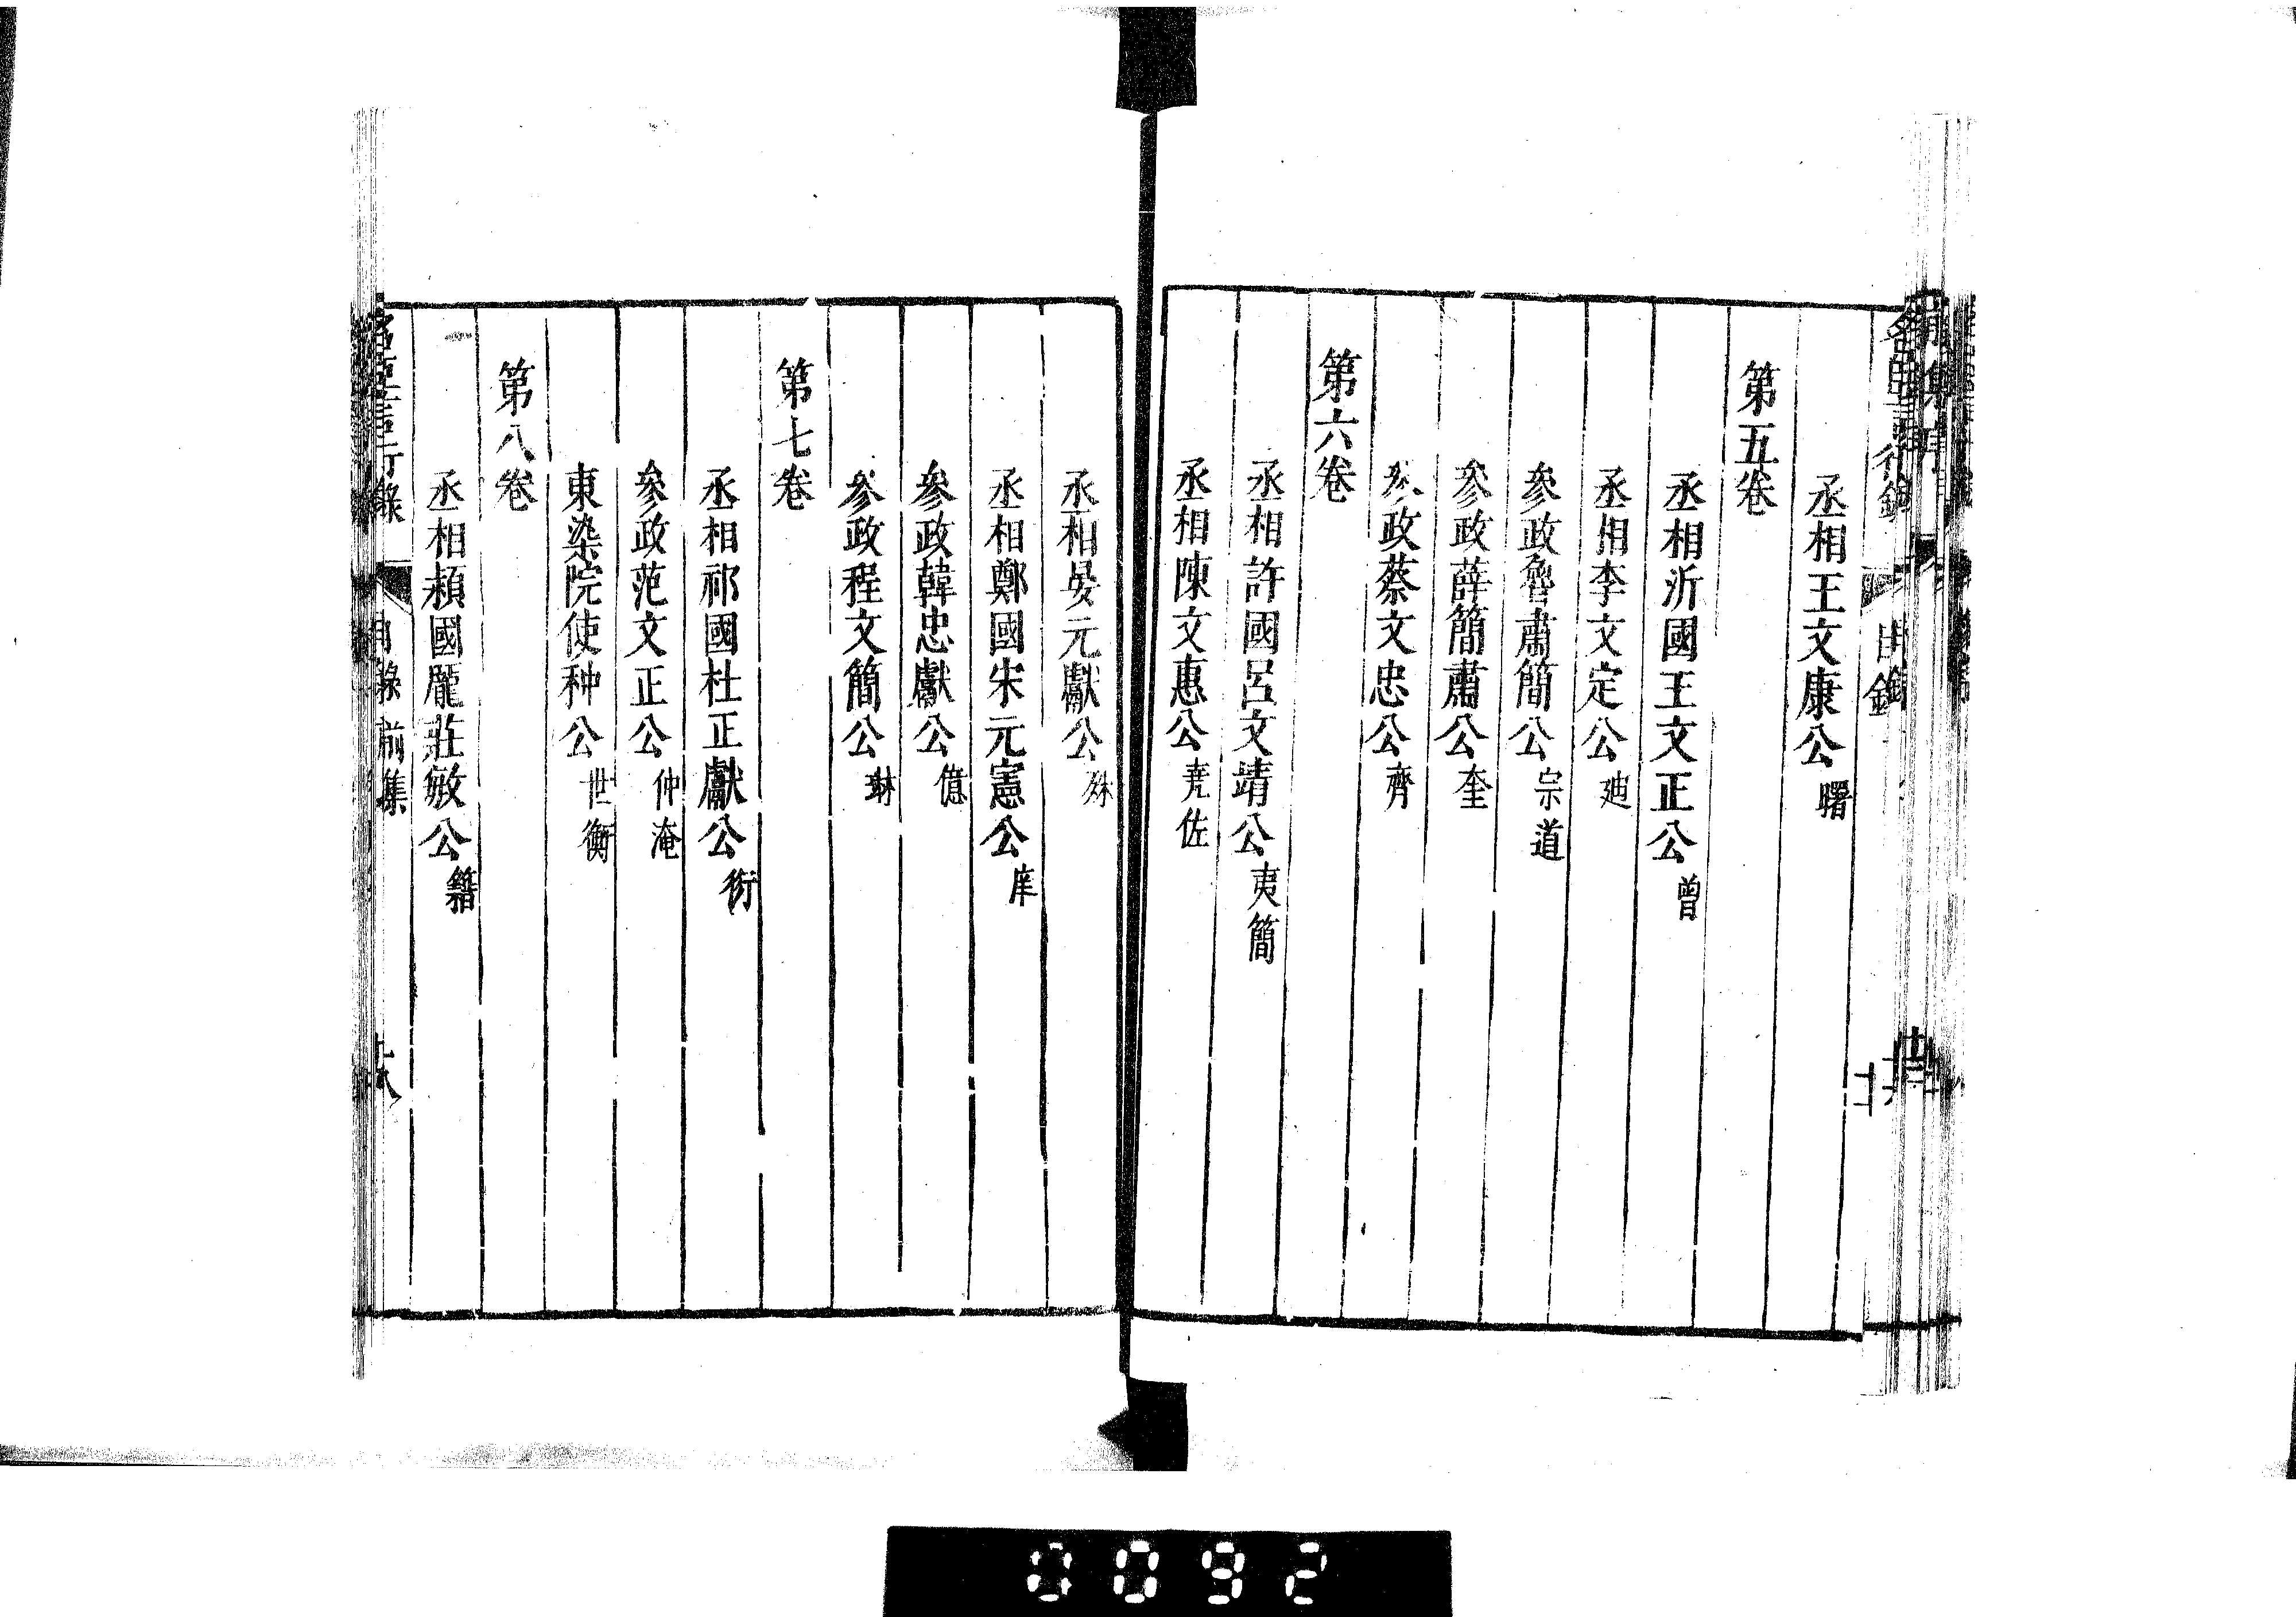 丞相王文康公曙
第五卷
丞相沂國王文正公曾
丞相李文定公迪
參政魯肅簡公宗道
參政薛簡肅公奎
參政蔡文忠公齊
第六卷
丞相許國呂文靖公夷簡
丞相陳文惠公堯佐
丞相晏元獻公殊
丞相鄭國宋元憲公庠
參政韓忠獻公億
參政程文簡公琳
第七卷
丞相祁國杜正獻公衍
參政范文正公仲淹
東染院使种公世衡
第八卷
丞相潁國龐莊敏公籍
0092